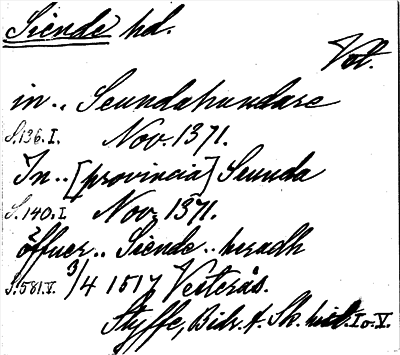 Siende hd.
Vol.
in.. Seundahundare
S.136.I. Nov. 1371.
In..[provincia] Seunda
S.140.I Nov. 1371.
öffuer.. Siende.. heradh
S.581.V. 3/4 1517 Vesterås.
Styffe, Bidr. t. Sk. hist. I o. V.